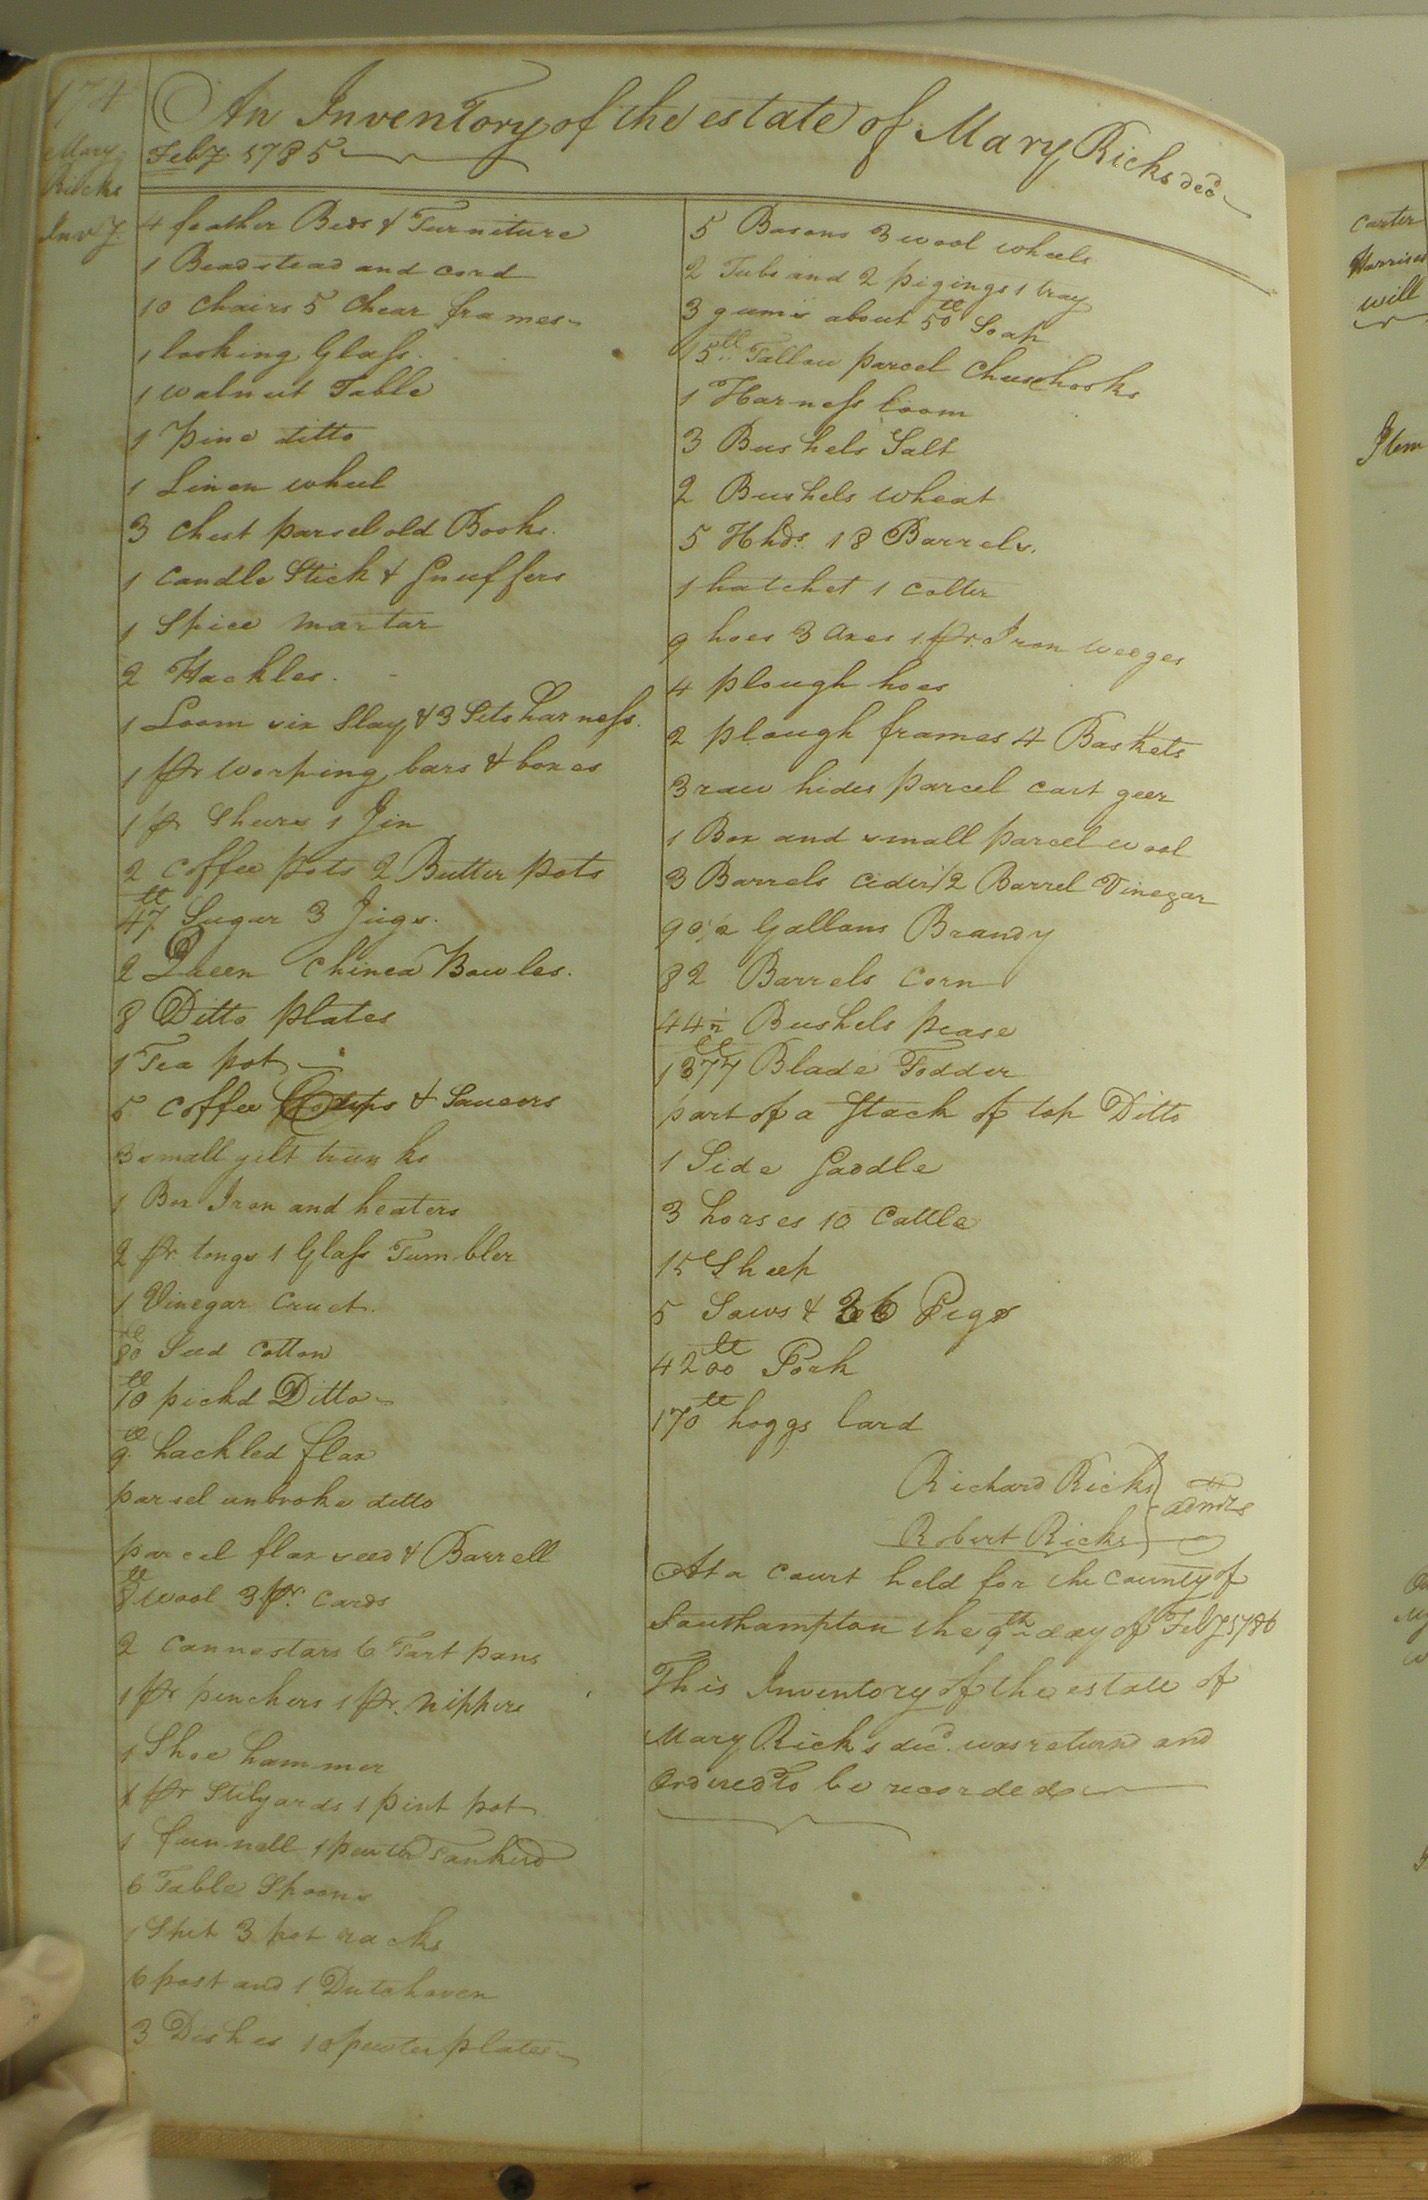 174
Mary
Ricks
Invy.
An Inventory of the estate of Mary Ricks decd
Feby 1785
4 feather Beds & Furniture
1 Beadstead and cord
10 Chairs 5 Chear frames
1 looking Glass.
1 walnut Table
1 pine ditto
1 Linen wheel
3 Chest parsel old Books.
1 Candle Stick & Snuffers
1 Spice martar
2 Hackles.
1 Loom six Slay & 3 Sets harness.
1 pr worping bars & boxes
1 pr Shears 1 Jin
2 Coffee pots 2 Butter pots
47 tt Sugar 3 Jugs.
2 Queen Chinea Bowles.
8 Ditto plates
1 Tea pot
5 Coffee Cups & Saucers
3 small gilt trunks
1 Box Iron and heaters
2 pr tongs 1 Glass Tumbler
1 Vinegar Cruet.
80 tt Seed Cotton
10 tt pickd Ditto
9 tt hackled flax
parsel unbroke ditto
parcel flax seed & Barrell
8 tt wool 3 pr. Cards
2 Cannestars 6 Tart pans
1 pr penchers 1 pr. Nippers
1 Shoe hammer
1 pr Stilyards 1 pint pot
1 funnell 1 pewter Tankerd
6 Table Spoons
1 Spit 3 pot racks
6 post and 1 Dutchoven
3 Dishes 10 pewter plates
5 Basons 3 wool wheels
2 Tubs and 2 pigings 1 tray
3 gums about 50 tt Soap
15 tt Tallow parcel
1 Harness loom
3 Bushels Salt
2 Bushels wheat
5 Hhds. 18 Barrels.
1 hatchet 1 Colter
9 hoes 3 axes 1 pr. Iron weeges
4 plough hoes
2 plough frames 4 Baskets
3 raw hides parcel cart geer
1 Box and small parcel wool
3 Barrels Cider 1/2 Barrel Vinegar
90 1/2 Gallons Brandy
82 Barrels Corn
44 1/2 Bushels pease
1377 tt Blade Fodder
part of a Stack of top Ditto
1 Side Saddle
3 horses 10 Cattle
15 Sheep
5 Sows & 36 Pigs
4200 tt Pork
170 tt hoggs lard
Richard Ricks
Robert Ricks
admrs
At a Court held for the County of
Southampton the 9th day of Feby 1786
This Inventory of the estate of
Mary Rick's decd. was returnd and
Ordered To be recorded
Carter
Harrises
will
Item